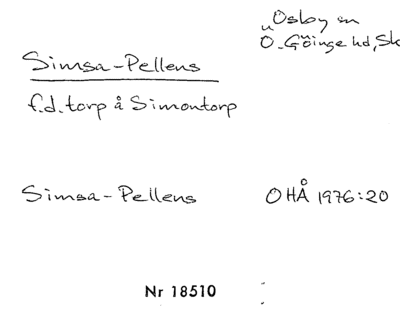 Osby sn
Ö. Göinge hd, Sk
Simsa-Pellens
f.d. torp å Simontorp
Simsa-Pellens OHÅ 1976:20
Nr 18510